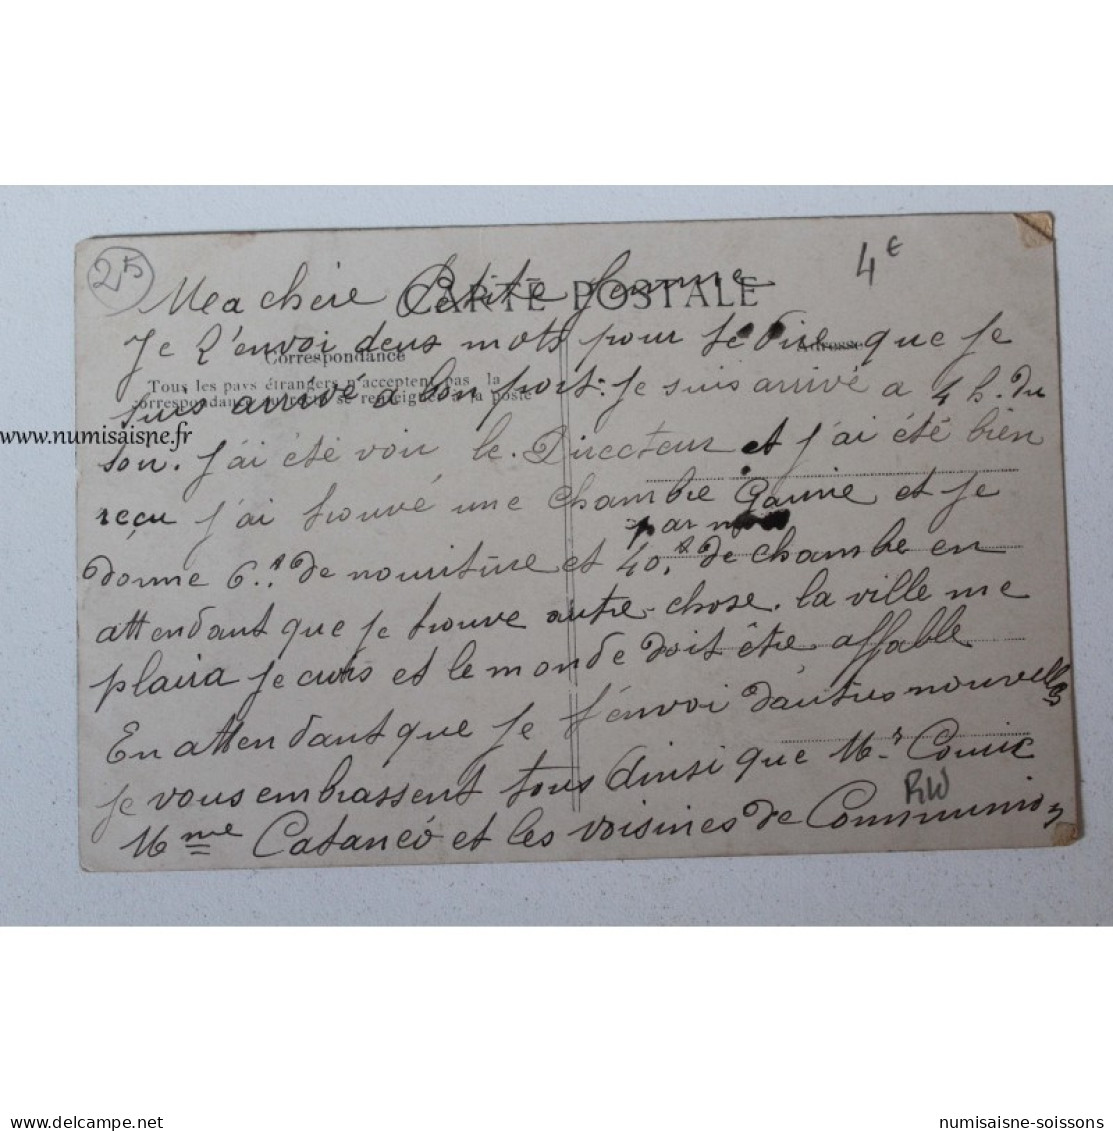 25
4€
CARTE POSTALE
Ma chère Petite femme
Je t'envoi deux mots pour te Dire que je
Correspondance
Adresse
Tous les pays étrangers n'acceptent pas la
correspondance au recto se renseigner à la poste
suis arrivé a bon port. Je suis arrivé a 4 h. du
www.numisaisne.fr
soir. J'ai été voir le Directeur et j'ai été bien
reçu j'ai trouvé une chambre Garnie et je
par
donne 6. de nourriture et 40. de chambe en
attendant que je trouve autre chose. la ville me
plaira je crois et le monde doit être affable
En attendant que je t'envoi d'autres nouvelles
je vous embrassent tous ainsi que Mr
RW
Mme Catanéo et les voisines de Communion
delcampe.net
numisaisne-soissons